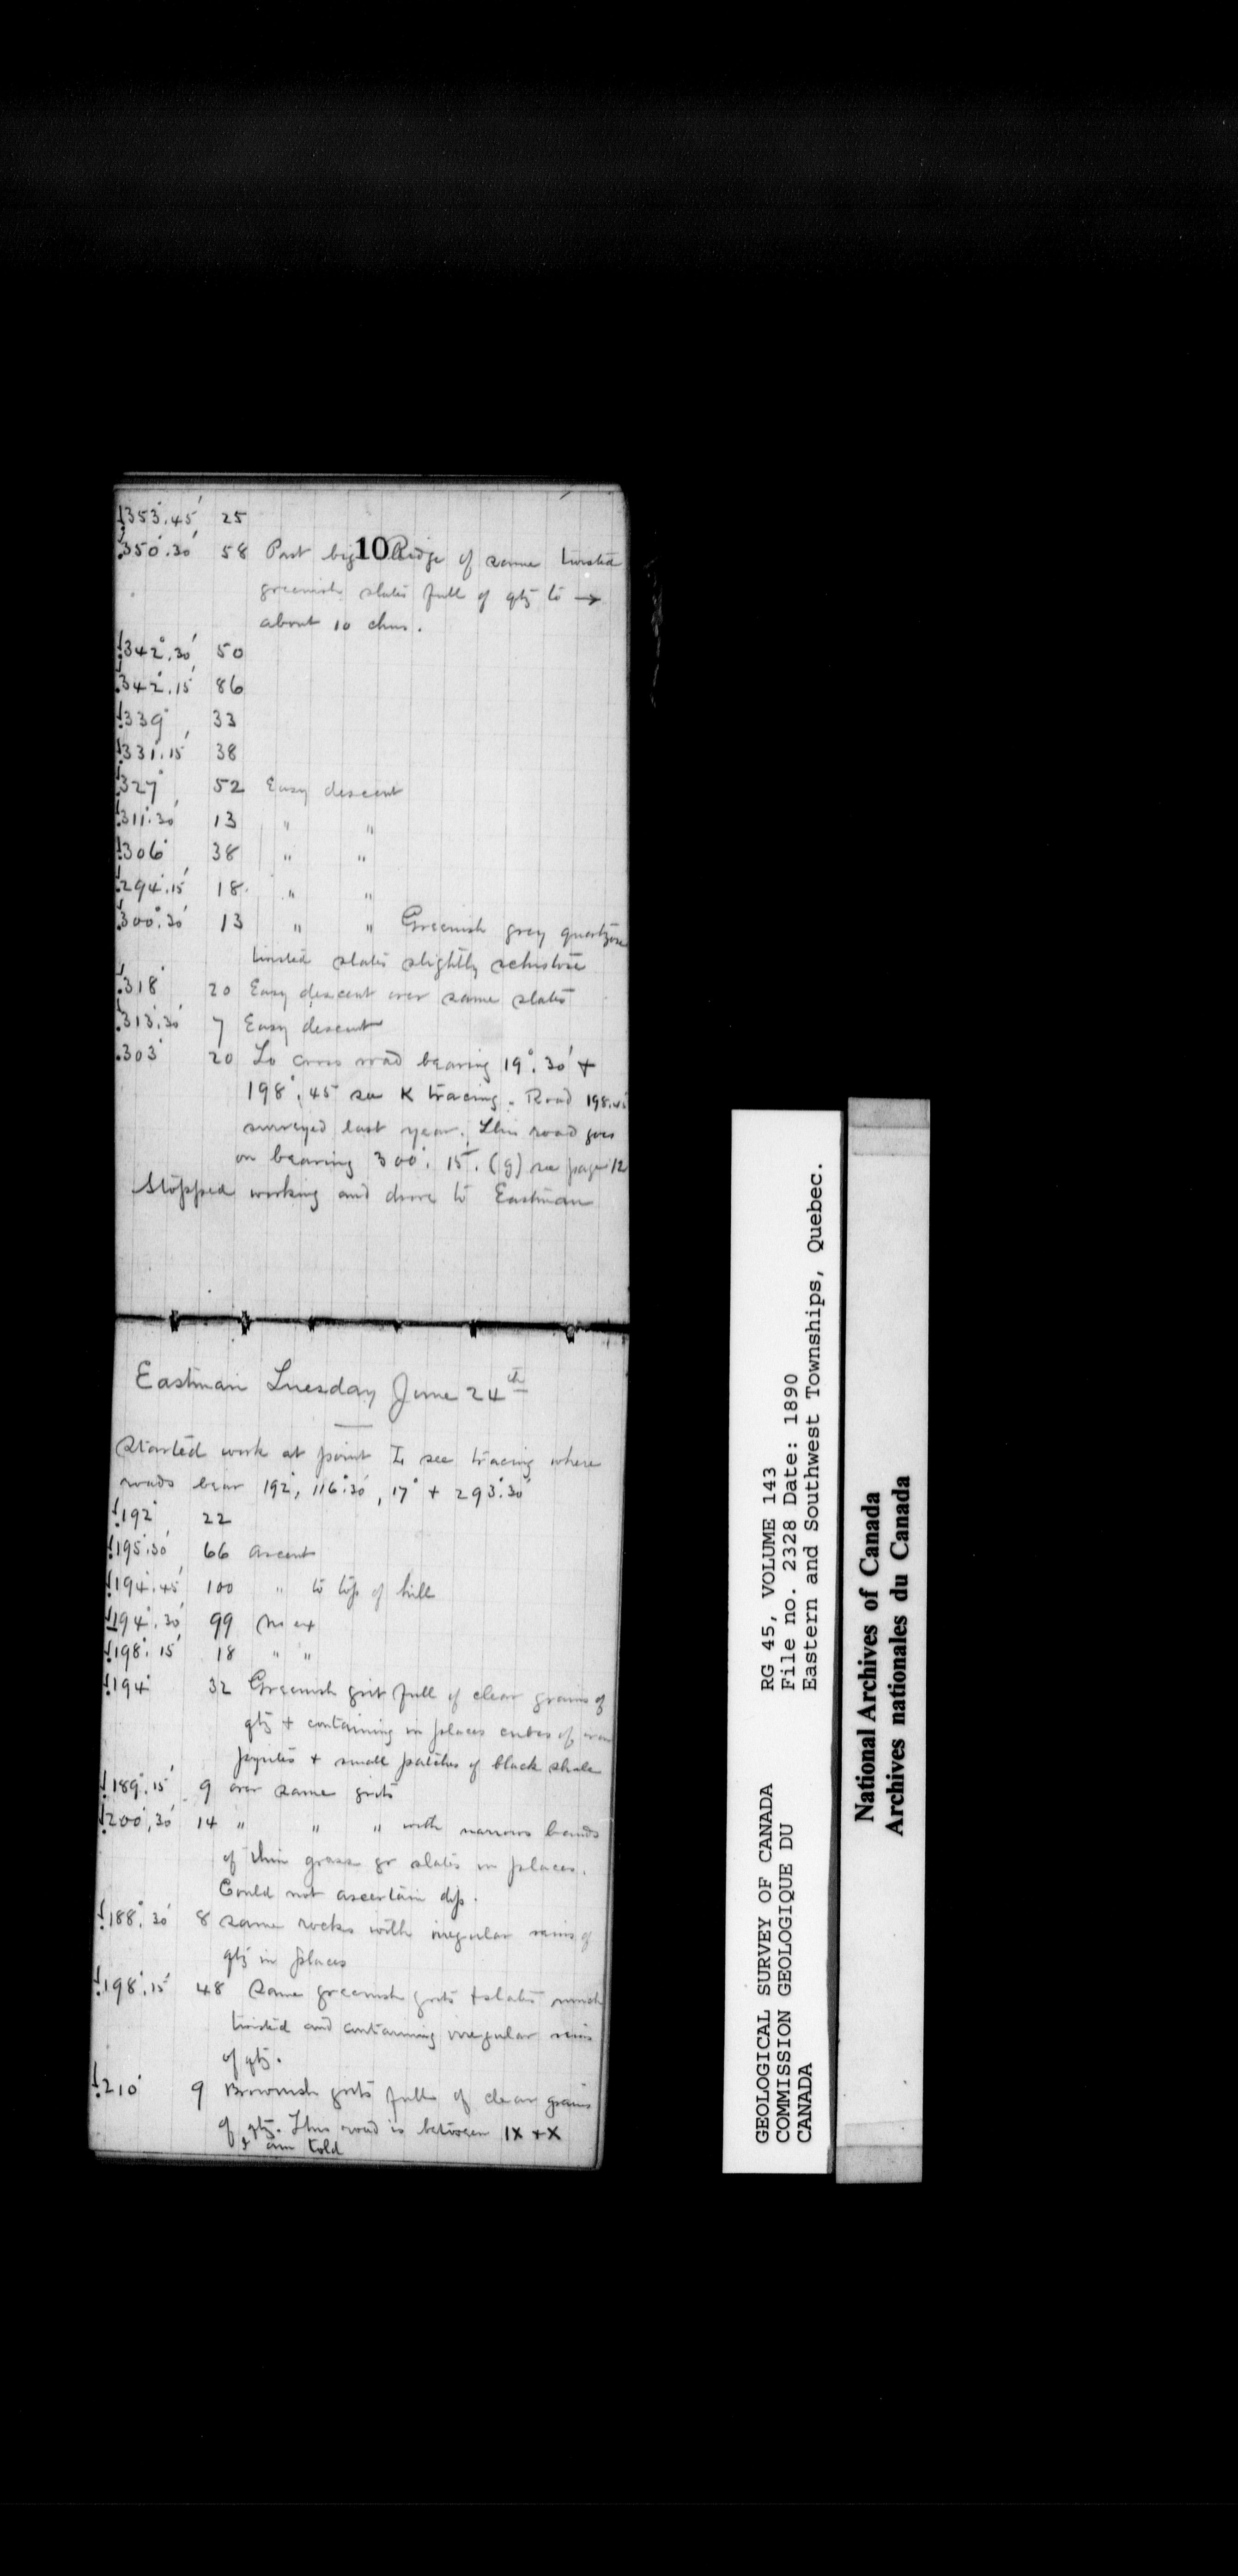 353°.45' 25
10
350°.30' 58 Past big Ridge of same twisted
greenish slates full of qtz to →
about 10 chns.
342°.30' 50
342°.15' 86
339° 33
331°.15' 38
327° 52 Easy descent
311°.30' 13 " "
306° 38 " "
294°.15' 18 " "
300°.30' 13 " " Greenish grey quartzose
twisted slates slightly schistose
318° 20 Easy descent over same slates
313°.30' 7 Easy descent
303° 20 To cross road bearing 19°.30' +
198°.45' see K tracing. Road 198.45
surveyed last year. This road goes
on bearing 300°.15'. (g) see page 12
Stopped working and drove to Eastman
Eastman Tuesday June 24th
Started work at point I see tracing where
roads bear 192°, 116°.30', 17° + 293°.30'
192° 22
195°.30' 66 ascent
194°.45' 100 " to top of hill
194°.30' 99 no ex
198°.15' 18 " "
194° 32 Greenish grit full of clear grains of
qtz + containing in places cubes of iron
pyrites + small patches of black shale
189°.15' 9 over same grits
200°.30' 14 " " " with narrow bands
of thin gr slates in places.
Could not ascertain dip.
188°.30' 8 same rocks with irregular veins of
qtz in places
198°.15' 48 Same greenish grits + slates much
twisted and containing irregular veins
of qtz.
210° 9 Brownish grits full of clear grains
of qtz. This road is between IX + X
I am told
RG 45, VOLUME 143
File no. 2328 Date: 1890
Eastern and Southwest Townships, Quebec.
GEOLOGICAL SURVEY OF CANADA
COMMISSION GEOLOGIQUE DU
CANADA
National Archives of Canada
Archives nationales du Canada